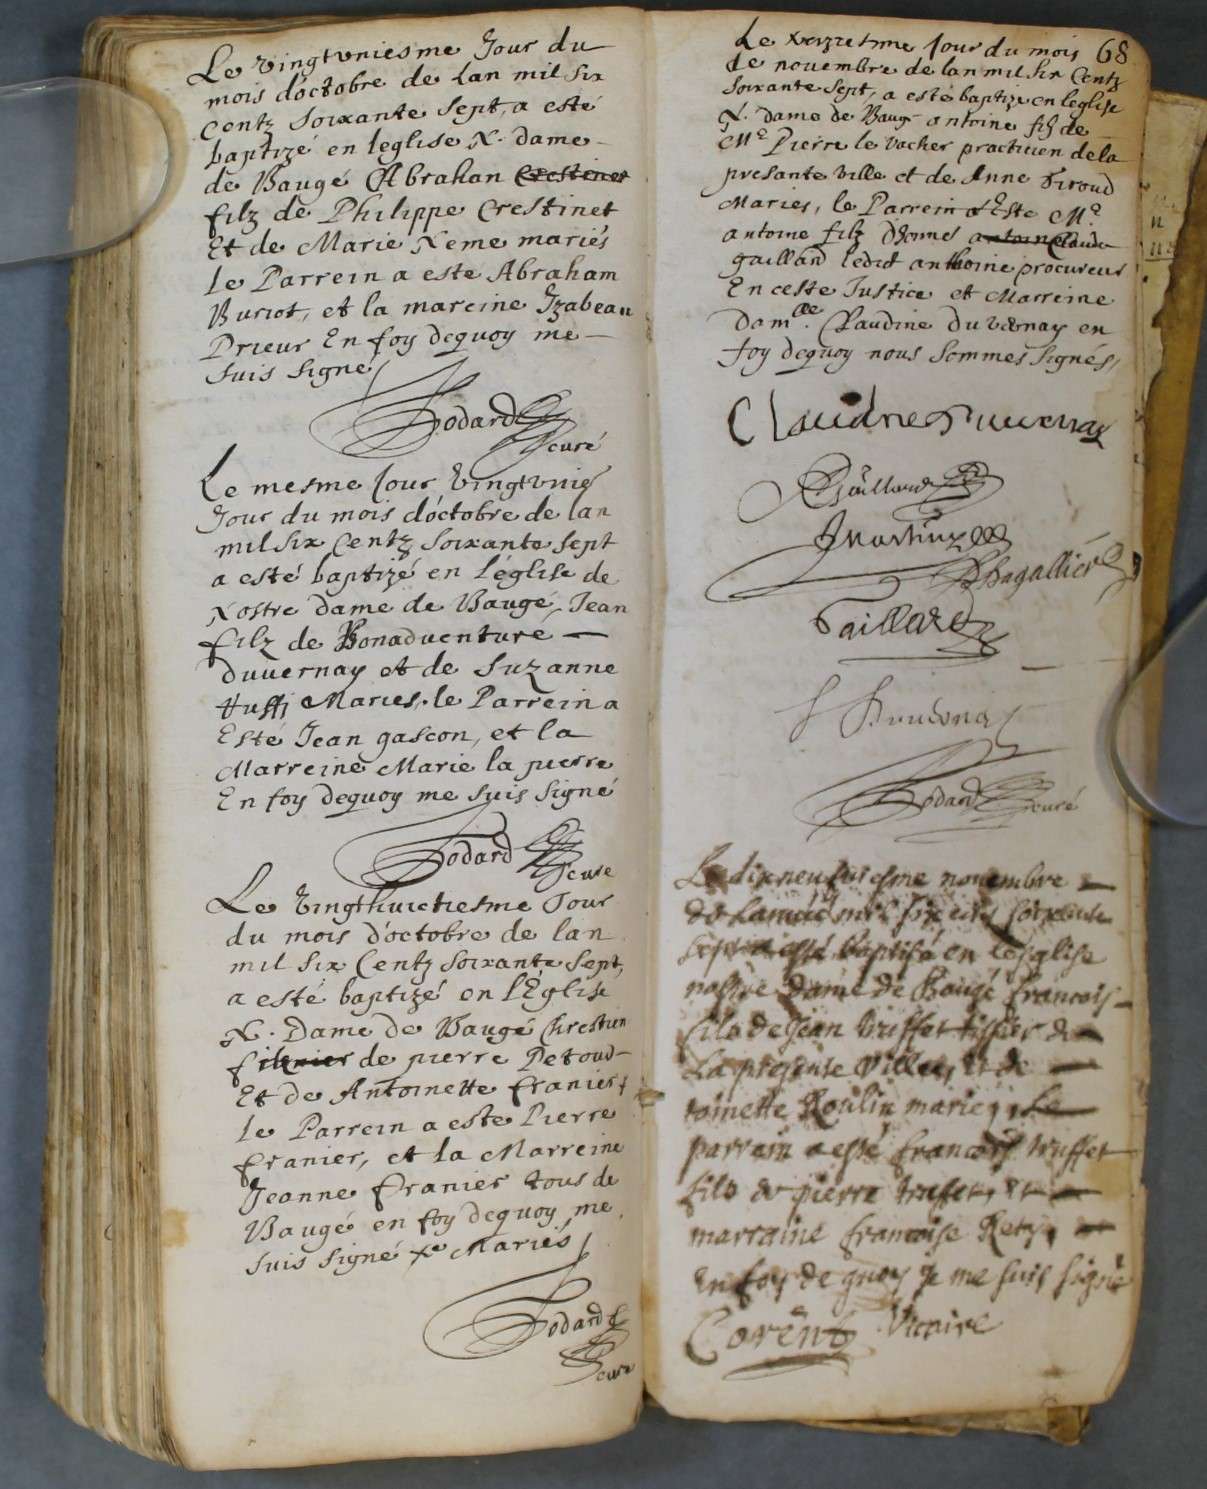 Le vingtvniesme Jour du
mois d'octobre de Lan mil six
Centz soixante sept, a esté
baptizé en leglise N. dame
de Baugé Abrahan Crestinet
filz de Philippe Crestinet
Et de Marie Neme mariés
le Parrein a este Abraham
Buriot, et la mareine Izabeau
Prieur En foy dequoy me
suis signé
Todard
curé
Le mesme Jour vingtvnie
Jour du mois d'octobre de lan
mil six Centz soixante sept
a esté baptizé en l'église de
Nostre dame de Baugé, Jean
filz de Bonaduenture
duuernay et de Suzanne
Maries, le Parrein a
Esté Jean gascon, et la
Marreine Marie la pierre
En foy dequoy me suis signé
Todard
cure
Le vingthuictiesme Jour
du mois d'octobre de lan
mil six Centz soixante sept,
a esté baptizé en l'Église
N. Dame de Baugé Chrestien
de pierre Petoud
Et de Antoinette franier
le Parrein a este Pierre
franier, et la Marreine
Jeanne franier tous de
Baugé en foy dequoy me
suis signé Mariés
Todard
cure
68
Le jour du mois
de nouembre de lan mil six Centz
soixante sept, a esté baptizé en leglise
N. dame de Baugé antoine filz de
Me Pierre le vacher practicien de la
presante ville et de Anne Giroud
Maries, le Parrein a Este Me
antoine filz antoine Claude
gailland ledict anthoine procureur
En ceste Justice et Marreine
damlle. Claudine duvernay en
foy dequoy nous sommes signés,
Claudine Duuernay
Gaillard
Bagallier
Gaillard
Todard curé
Le dixneufuiesme nouembre
de Lannée mil six cents soixante
sept a esté baptisé en leglise
nostre dame de Baugé francois
fils de Jean truffet tissier de
La presente ville, et de
toinette Roulin mariés, Le
parrain a esté francois truffet
fils de pierre truffet, et
marraine francoise Rety,
En foy de quoy Je me suis signé
Corent Vicaire